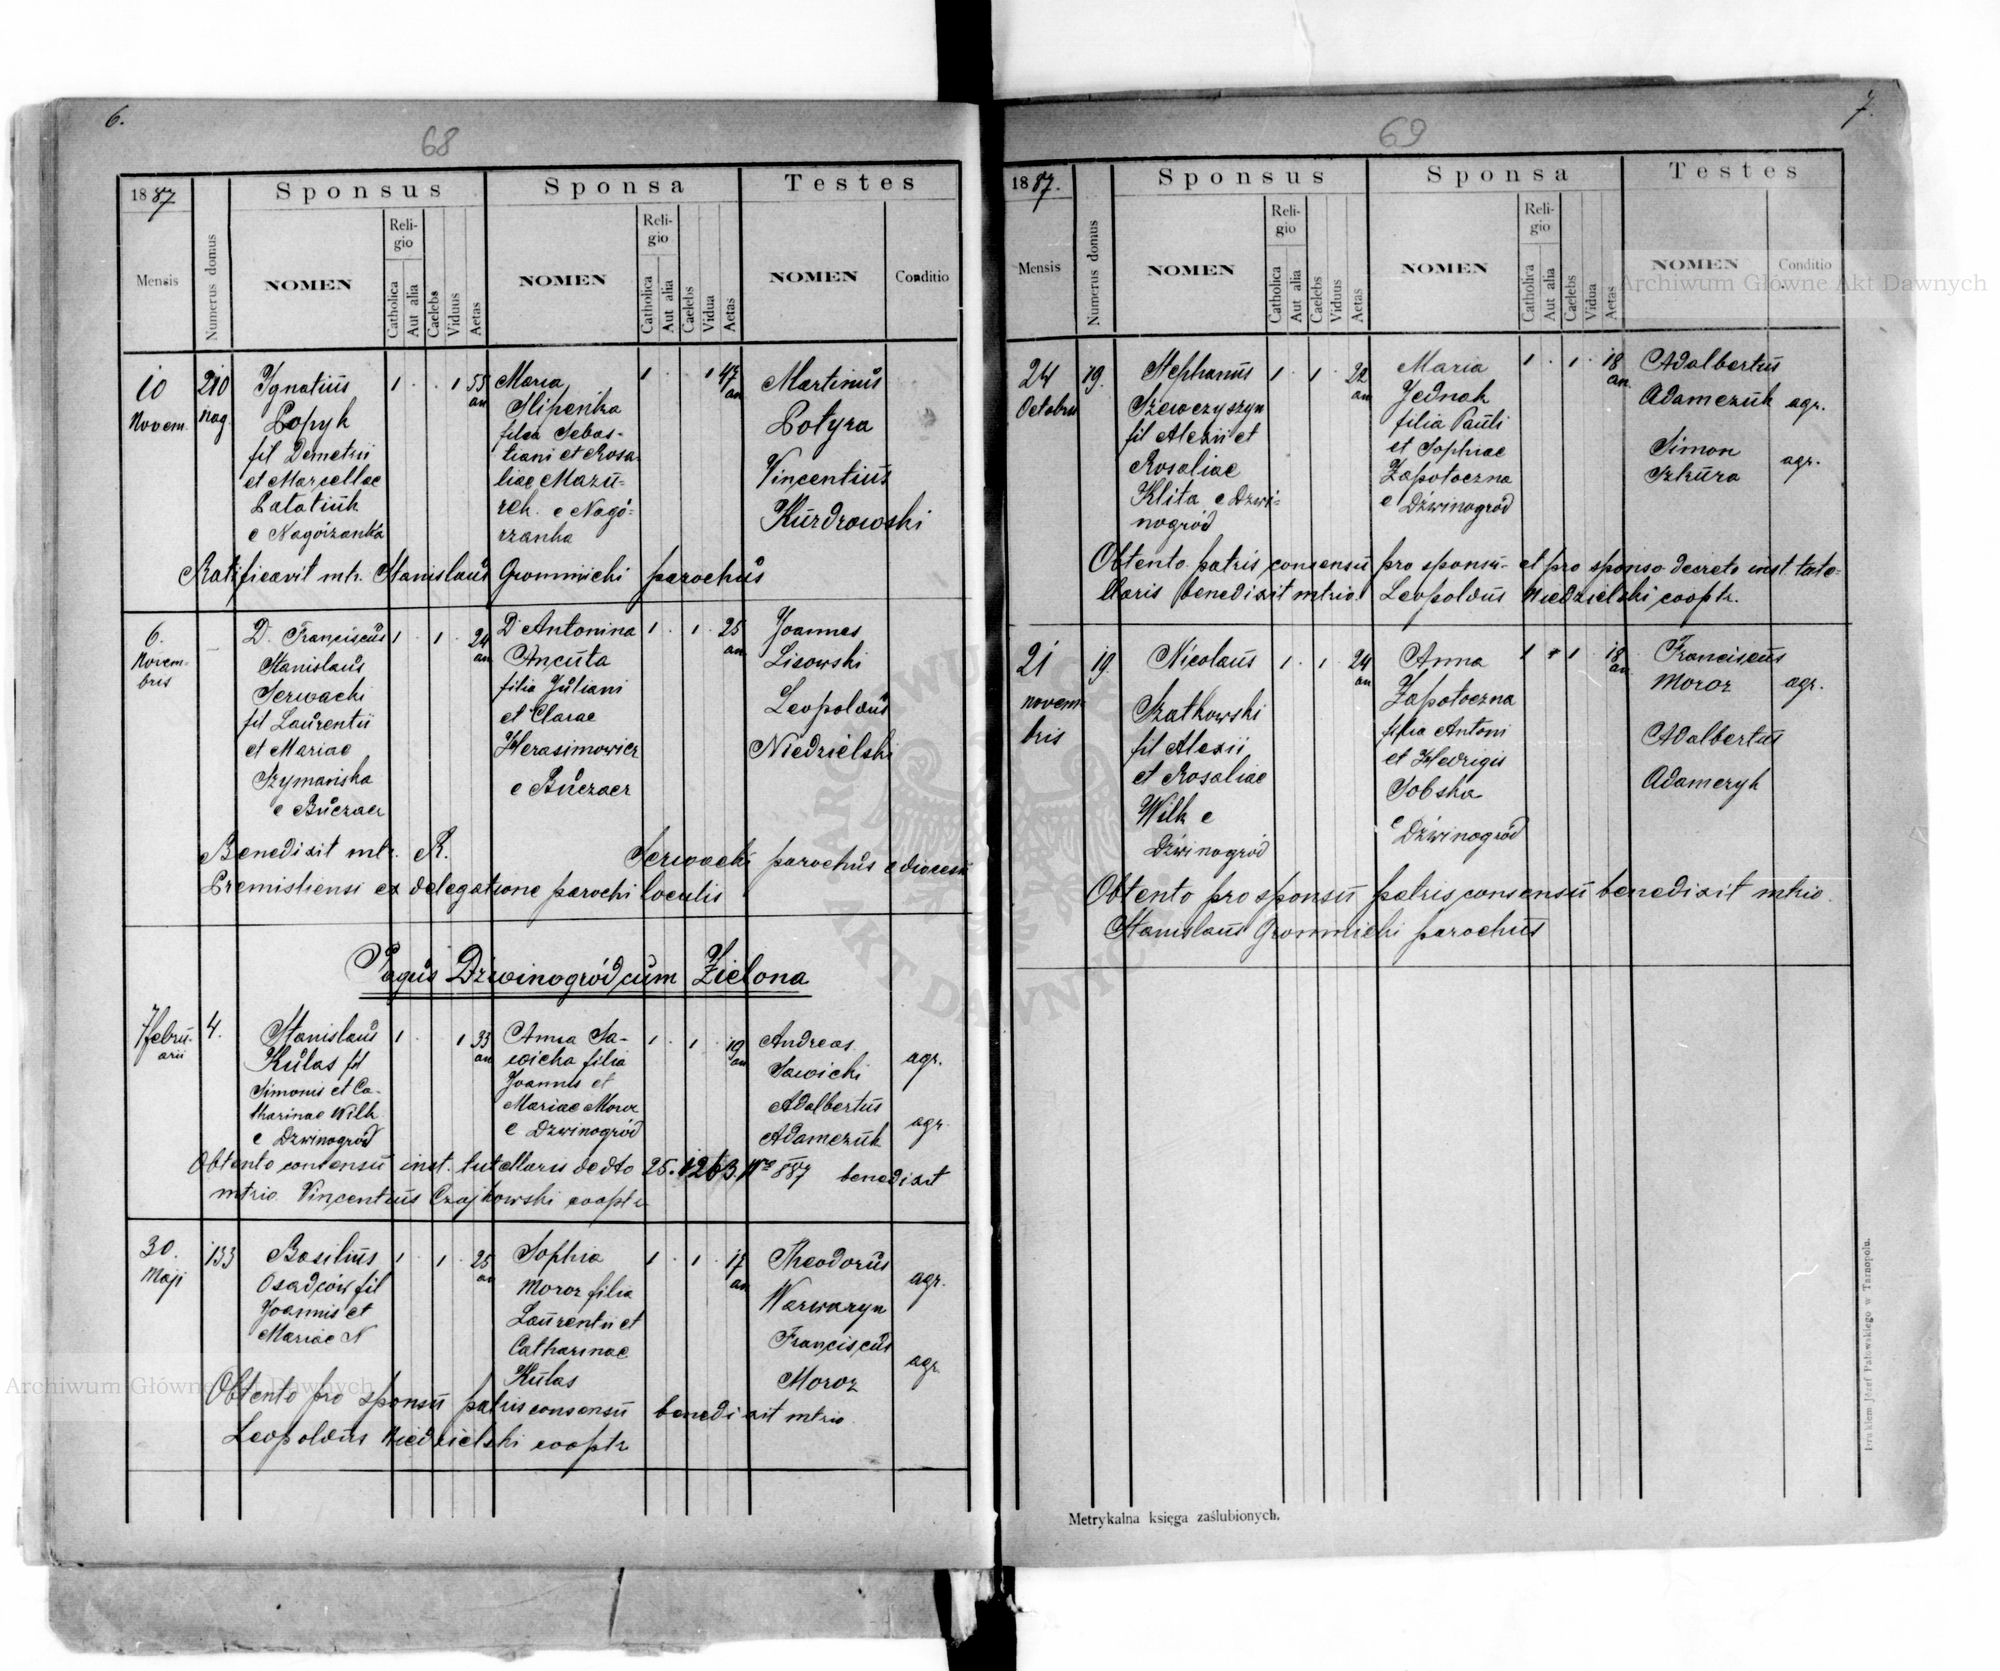 6.
68
1887
Mensis
Numerus domus
Sponsus
NOMEN
Religio
Catholica
Aut alia
Caelebs
Viduus
Aetas
Sponsa
NOMEN
Religio
Catholica
Aut alia
Caelebs
Vidua
Aetas
Testes
NOMEN
Conditio
10
Novem.
210
nag.
Ygnatius
Popyk
fil Demetrii
et Marcellae
e Nagórzanka
1 . . 1 55
an
Maria
Slipenka
filia Sebas-
tiani et Rosa
liae Mazu-
rek. e Nagó-
rzanka
1 . . 1 47
an
Martinus
Potyra
Vincentius
Kurdrowski
Ratificavit mtr. Stanislaus Gromnicki parochus
6.
Novem-
bris
D. Franciscus
Stanislaus
Serwacki
fil Laurentii
et Mariae
Szymańska
e Buczacz
1 . 1 . 24
an
D Antonina
Ancuta
filia Juliani
et Clarae
Herasimowicz
e Buczacz
1 . 1 . 25
an
Joannes
Lisowski
Leopoldus
Niedzielski
Benedixit mtr. R. Serwacki parochus e diocesi
Premisliensi ex delegatione parochi loculis
Pagus Dzwinogród cum Zielona
7 Febru-
arii
4.
Stanislaus
Kulas fil
Simonis et Ca-
tharinae Wilk
e Dzwinogród
1 . . 1 33
an
Anna Sa-
wicka filia
Joannis et
Mariae Moroz
e Dzwinogród
1 . 1 . 19
an
Andreas
Sawicki
agr.
Adalbertus
Adamczuk
agr.
Obtento consensu inst. tutellaris dedto 25. 887 benedixit
mtrio. Vincentius Czajkowski cooptr
30.
Maji
133
Basilius
Osadców fil
Joannis et
Mariae N
1 . 1 . 25
an
Sophia
Moroz filia
Laurentii et
Catharinae
Kulas
1 . 1 . 17
an
Theodorus
Warwaryn
agr.
Franciscus
Moroz
agr.
Obtento pro sponsu patris consensu benedixit mtrio.
Leopoldus Niedzielski cooptr
7.
69
1887.
Mensis
Numerus domus
Sponsus
NOMEN
Religio
Catholica
Aut alia
Caelebs
Viduus
Aetas
Sponsa
NOMEN
Religio
Catholica
Aut alia
Caelebs
Vidua
Aetas
Testes
NOMEN
Conditio
24
Octobris
19.
Stephanus
Szewczyszyn
fil Alexii et
Rosaliae
Klita e Dzwi-
nogród
1 . 1 . 22
an
Maria
Jednak
filia Pauli
et Sophiae
Zapotoczna
e Dźwinogród
1 . 1 . 18
an
Adalbertus
Adamczuk agr.
Simon
Szkura
agr.
Obtento patris consensu pro sponsu- et pro sponso decreto inst. tute-
llaris benedixit mtrio. Leopoldus Niedzielski cooptr.
21
novem-
bris
19.
Nicolaus
Szatkowski
fil Alexii
et Rosaliae
Wilk e
Dźwinogród
1 . 1 . 24
an
Anna
Zapotoczna
filia Antoni
et Hedvigis
Sobska
e Dźwinogród
1 . 1 . 18
an
Franciscus
Moroz agr.
Adalbertus
Adamczyk
Obtento pro sponsu patris consensu benedixit mtrio.
Stanislaus Gromnicki parochus
Metrykalna księga zaślubionych.
Drukiem Józef Pałowskiego w Tarnopolu.
Archiwum Główne Akt Dawnych
Archiwum Główne Akt Dawnych
ARCHIWUM GŁÓWNE AKT DAWNYCH